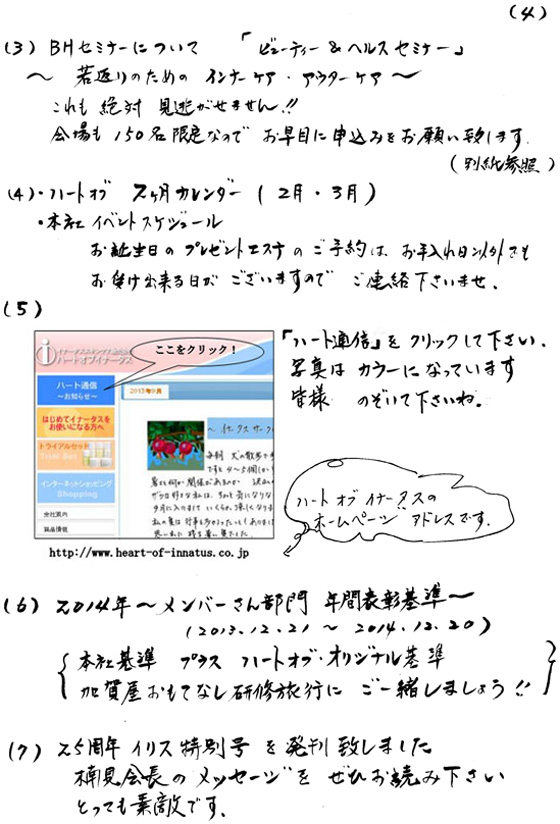 (4)
(3) BHセミナーについて 「ビューティー&ヘルスセミナー」
～ 若返りのための インナーケア・アウターケア～
これも 絶対 見逃がせません!!
会場も 150名 限定なので お早目に申込みをお願い致します。
(別紙参照)
(4)・ハートオブ 2ヶ月カレンダー (2月・3月)
・本社イベントスケジュール
お誕生日の プレゼントエステ のご予約は、お手入れ日以外でも
お受け出来る日が ございますので ご連絡下さいませ。
(5)
イナータススキンケア
ハートオブイナータス
ここをクリック!
ハート通信
～お知らせ～
2013年9月
はじめてイナータスを
お使いになる方へ
トライアルセット
Trial Set
インターネットショッピング
Shopping
会社案内
製品情報
http://www.heart-of-innatus.co.jp
「ハート通信」を クリックして下さい、
写真は カラーになっています
皆様 のぞいて下さいね。
ハートオブイナータスの
ホームページ アドレスです。
(6) 2014年～メンバーさん部門 年間表彰基準～
(2013.12.21 ～ 2014.12.20)
本社基準 プラス ハートオブ・オリジナル基準
加賀屋おもてなし研修旅行に ご一緒しましょう!!
(7) 25周年 イリス 特別号 を 発刊 致しました
楠見会長の メッセージを ぜひお読み下さい
とっても素敵です。